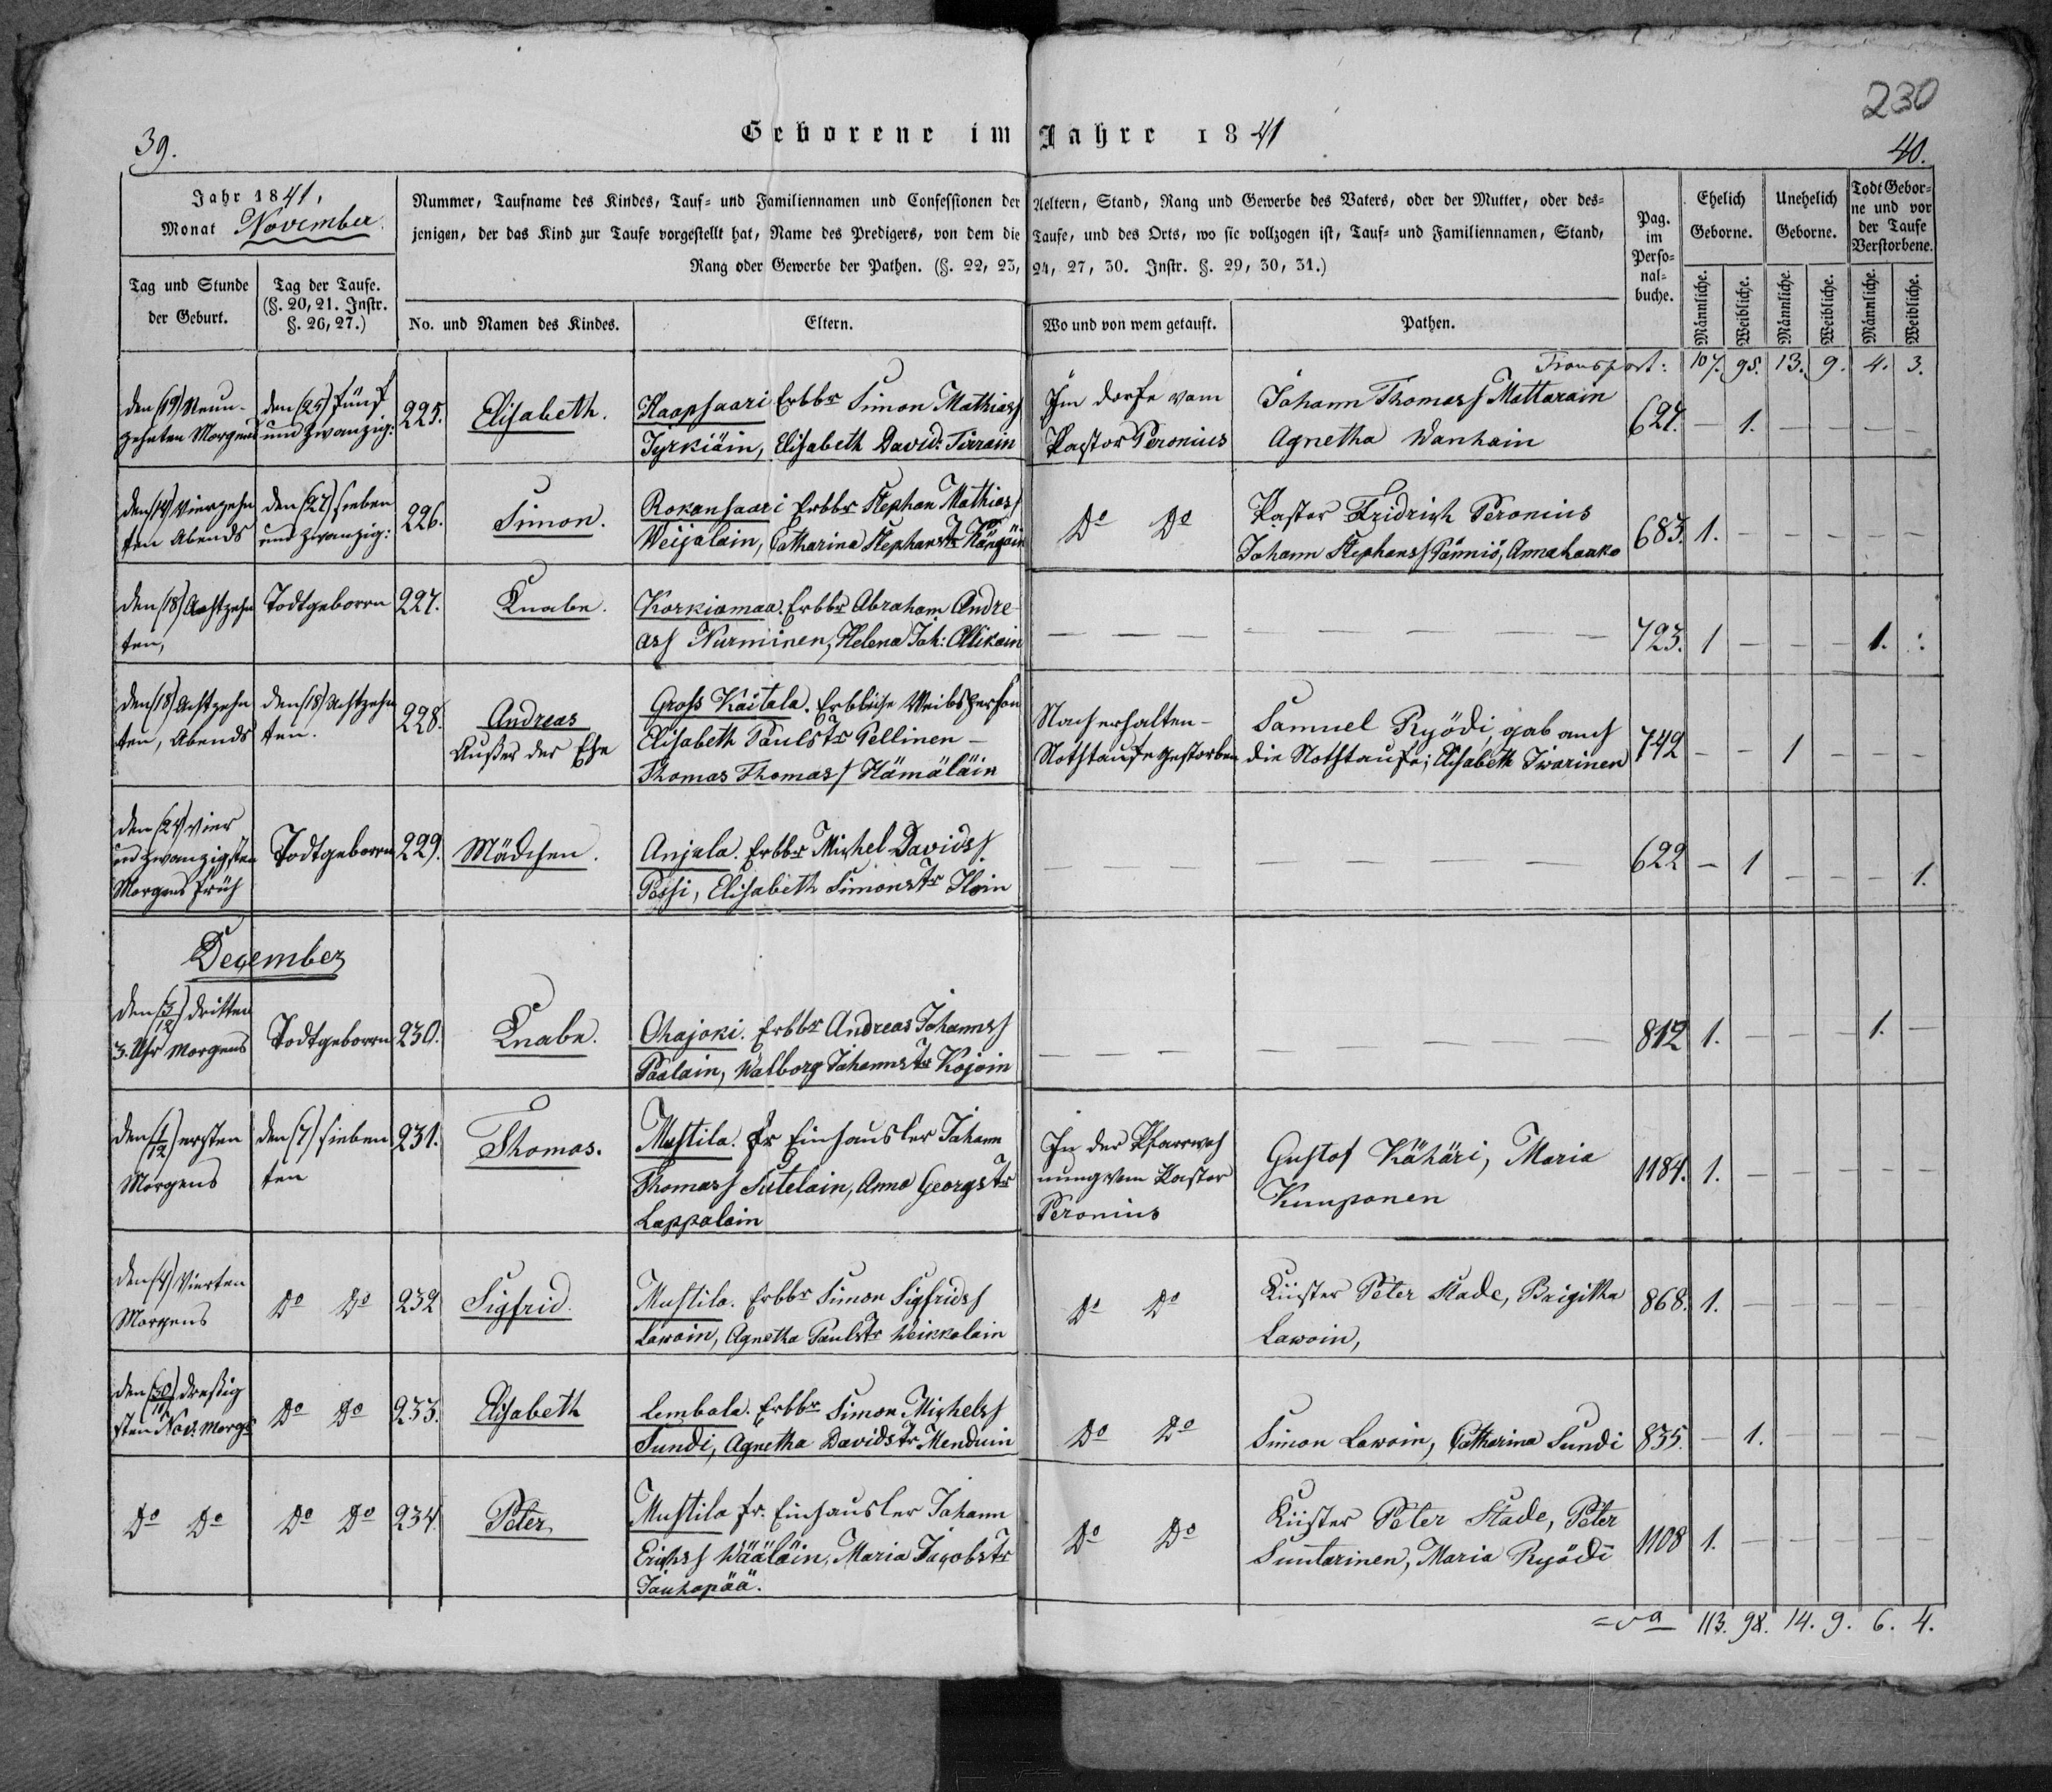 230
39.
Geborene im Jahre 1841
40.
Jahr 1841,
Monat November.
Nummer, Taufname des Kindes, Tauf- und Familiennamen und Confessionen der Aeltern, Stand, Rang und Gewerbe des Vaters, oder der Mutter, oder des-
jenigen, der das Kind zur Taufe vorgestellt hat, Name des Predigers, von dem die Taufe, und des Orts, wo sie vollzogen ist, Tauf- und Familiennamen, Stand,
Rang oder Gewerbe der Pathen. (§. 22, 23, 24, 27, 30. Instr. §. 29, 30, 31.)
Pag.
im
Perso-
nal-
buche.
Ehelich
Geborne.
Unehelich
Geborne.
Todt Gebor-
ne und vor
der Taufe
Verstorbene.
Tag und Stunde
der Geburt.
Tag der Taufe.
(§. 20, 21. Instr.
§. 26, 27.)
No. und Namen des Kindes.
Eltern.
Wo und von wem getauft.
Pathen.
Männliche.
Weibliche.
Männliche.
Weibliche.
Männliche.
Weibliche.
Transport: 107. 95. 13. 9. 4. 3.
den (19) Neun-
zehnten Morgens
den (25) fünf
und zwanzig:
225.
Elisabeth.
Haapsaari Erbbr Simon Mathiass
Tyrkiäin, Elisabeth David: Tirrain
Im Dorfe vom
Pastor Peronius
Johann Thomass Mattarain
Agnetha Wanhain
627. — 1. — — — —
den (14) Vierzehn
ten Abends
den (27) sieben
und zwanzig:
226.
Simon.
Rokansaari Erbbr Stephan Mathiass
Weijalain, Catharina Stephanstr Kängäin
Do Do
Pastor Fridrich Peronius
Johann Stephanss Pänniö, Anna haako
683. 1. — — — — —
den (18) Achtzehn
ten,
Todtgeborrn
227.
Knabe.
Korkiamaa. Erbbr Abraham Andre-
ass Nurminen, Helena Joh: Ollikain
— — — — — — — — —
723. 1 — — — 1. :
den (18) Achtzehn
ten, Abends
den (18) Achtzehn
ten.
228.
Andreas
Außer der Ehe
Gross Kaitala. Erbliche Weibsperson
Elisabeth Paulstr Pellinen —
Thomas Thomass Hämäläin
Nach erhalten-
Nothtaufe gestorben
Samuel Ryödi, gab auch
die Nothtaufe; Elisabeth Iwarinen
742 — — 1 — — —
den (24) Vier
und zwanzigsten
Morgens früh
Todtgeborrn
229.
Mädchen.
Anjala. Erbbr Michel Davidss
Possi, Elisabeth Simonstr Iloin
— — — — — —
622 — 1 — — — 1.
December
den (3/12) dritten
3. Uhr Morgens
Todtgeborrn
230.
Knabe.
Ohajoki. Erbbr Andreas Johannss
Päälain, Walborg Johannstr Kojoin
— — — — — — — — —
812 1. — — — 1. —
den (1/12) ersten
Morgens
den (7) sieben
ten
231.
Thomas.
Mustila. fr Einhäusler Johann
Thomass Sutelain, Anna Georgstr
Lappalain
In der Pfarrwoh
nung vom Pastor
Peronius
Gustof Kähäri, Maria
Kuuponen
1184. 1. — — — — —
den (4) Vierten
Morgens
Do Do
232
Sigfrid.
Mustila. Erbbr Simon Sigfridss
Lawoin, Agnetha Paulstr Weikkolain
Do Do
Küster Peter Stade, Brigitha
Lawoin,
868. 1. — — — —
den (30/11) dreßig
sten Nov: Morgs
Do Do
233.
Elisabeth
Lembala. Erbbr Simon Michelss
Sundi, Agnetha Davidstr Menduin
Do Do
Simon Lawoin, Catharina Sundi
835. — 1. — — — —
Do Do
Do Do
234.
Peter
Mustila fr. Einhäusler Johann
Erichss Wääläin, Maria Jacobstr
Jäuhopää.
Do Do
Küster Peter Stade, Peter
Suntarinen, Maria Ryödi
1108 1. — — — — —
113. 98. 14. 9. 6. 4.